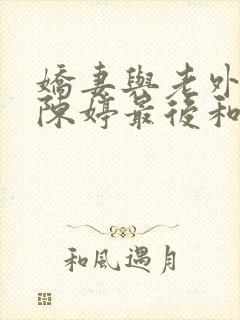 嬌妻與老外
陳婷最後和
和風遇月